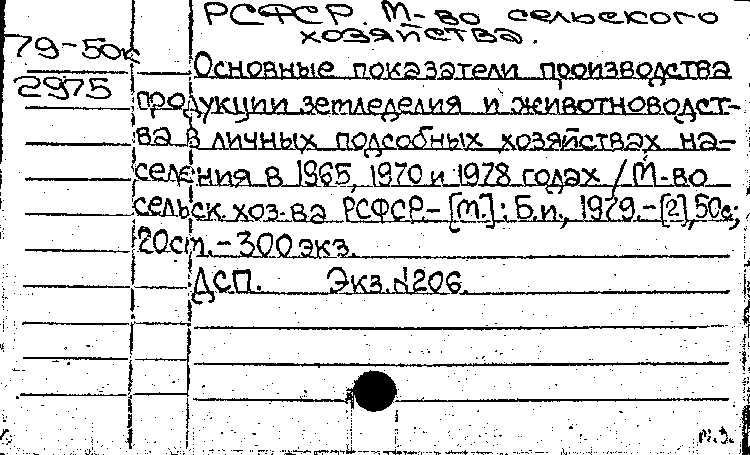 РСФСР. М-во сельского
хозяйства.
79-50к
2975
Основные показатели производства
продукции земледелия и животноводст-
ва в личных подсобных хозяйствах на-
селения в 1965, 1970 и 1978 годах / М-во
сельск. хоз-ва РСФСР.- [М.]: Б.и., 1979.-[2], 50с;
20см.-300 экз.
ДСП. Экз.№206.